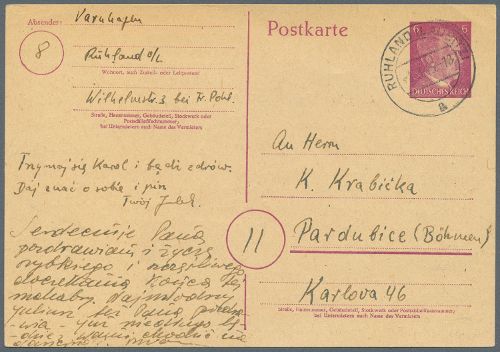 Absender: Varnhagen
8
Ruhland O/L
Wohnort, auch Zustell- oder Leitpostamt
Wilhelmstr. 3 bei Fr. Pohl.
Straße, Hausnummer, Gebäudeteil, Stockwerk oder
Postschließfachnummer;
bei Untermietern auch Name des Vermieters
Postkarte
6 6
DEUTSCHES REICH
RUHLAND
a
Trzymaj się Karol i bądź zdrów.
Daj znać o sobie i pisz
Twój Julek.
Serdecznie Pana
pozdrawiam i życzę
szybkiego i szczęśliwego
doczekania końca tej
bez Pana
An Herrn
K. Krabička
11
Pardubice (Böhmen)
Karlova 46
Straße, Hausnummer, Gebäudeteil, Stockwerk oder Postschließfachnummer;
bei Untermietern auch Name des Vermieters